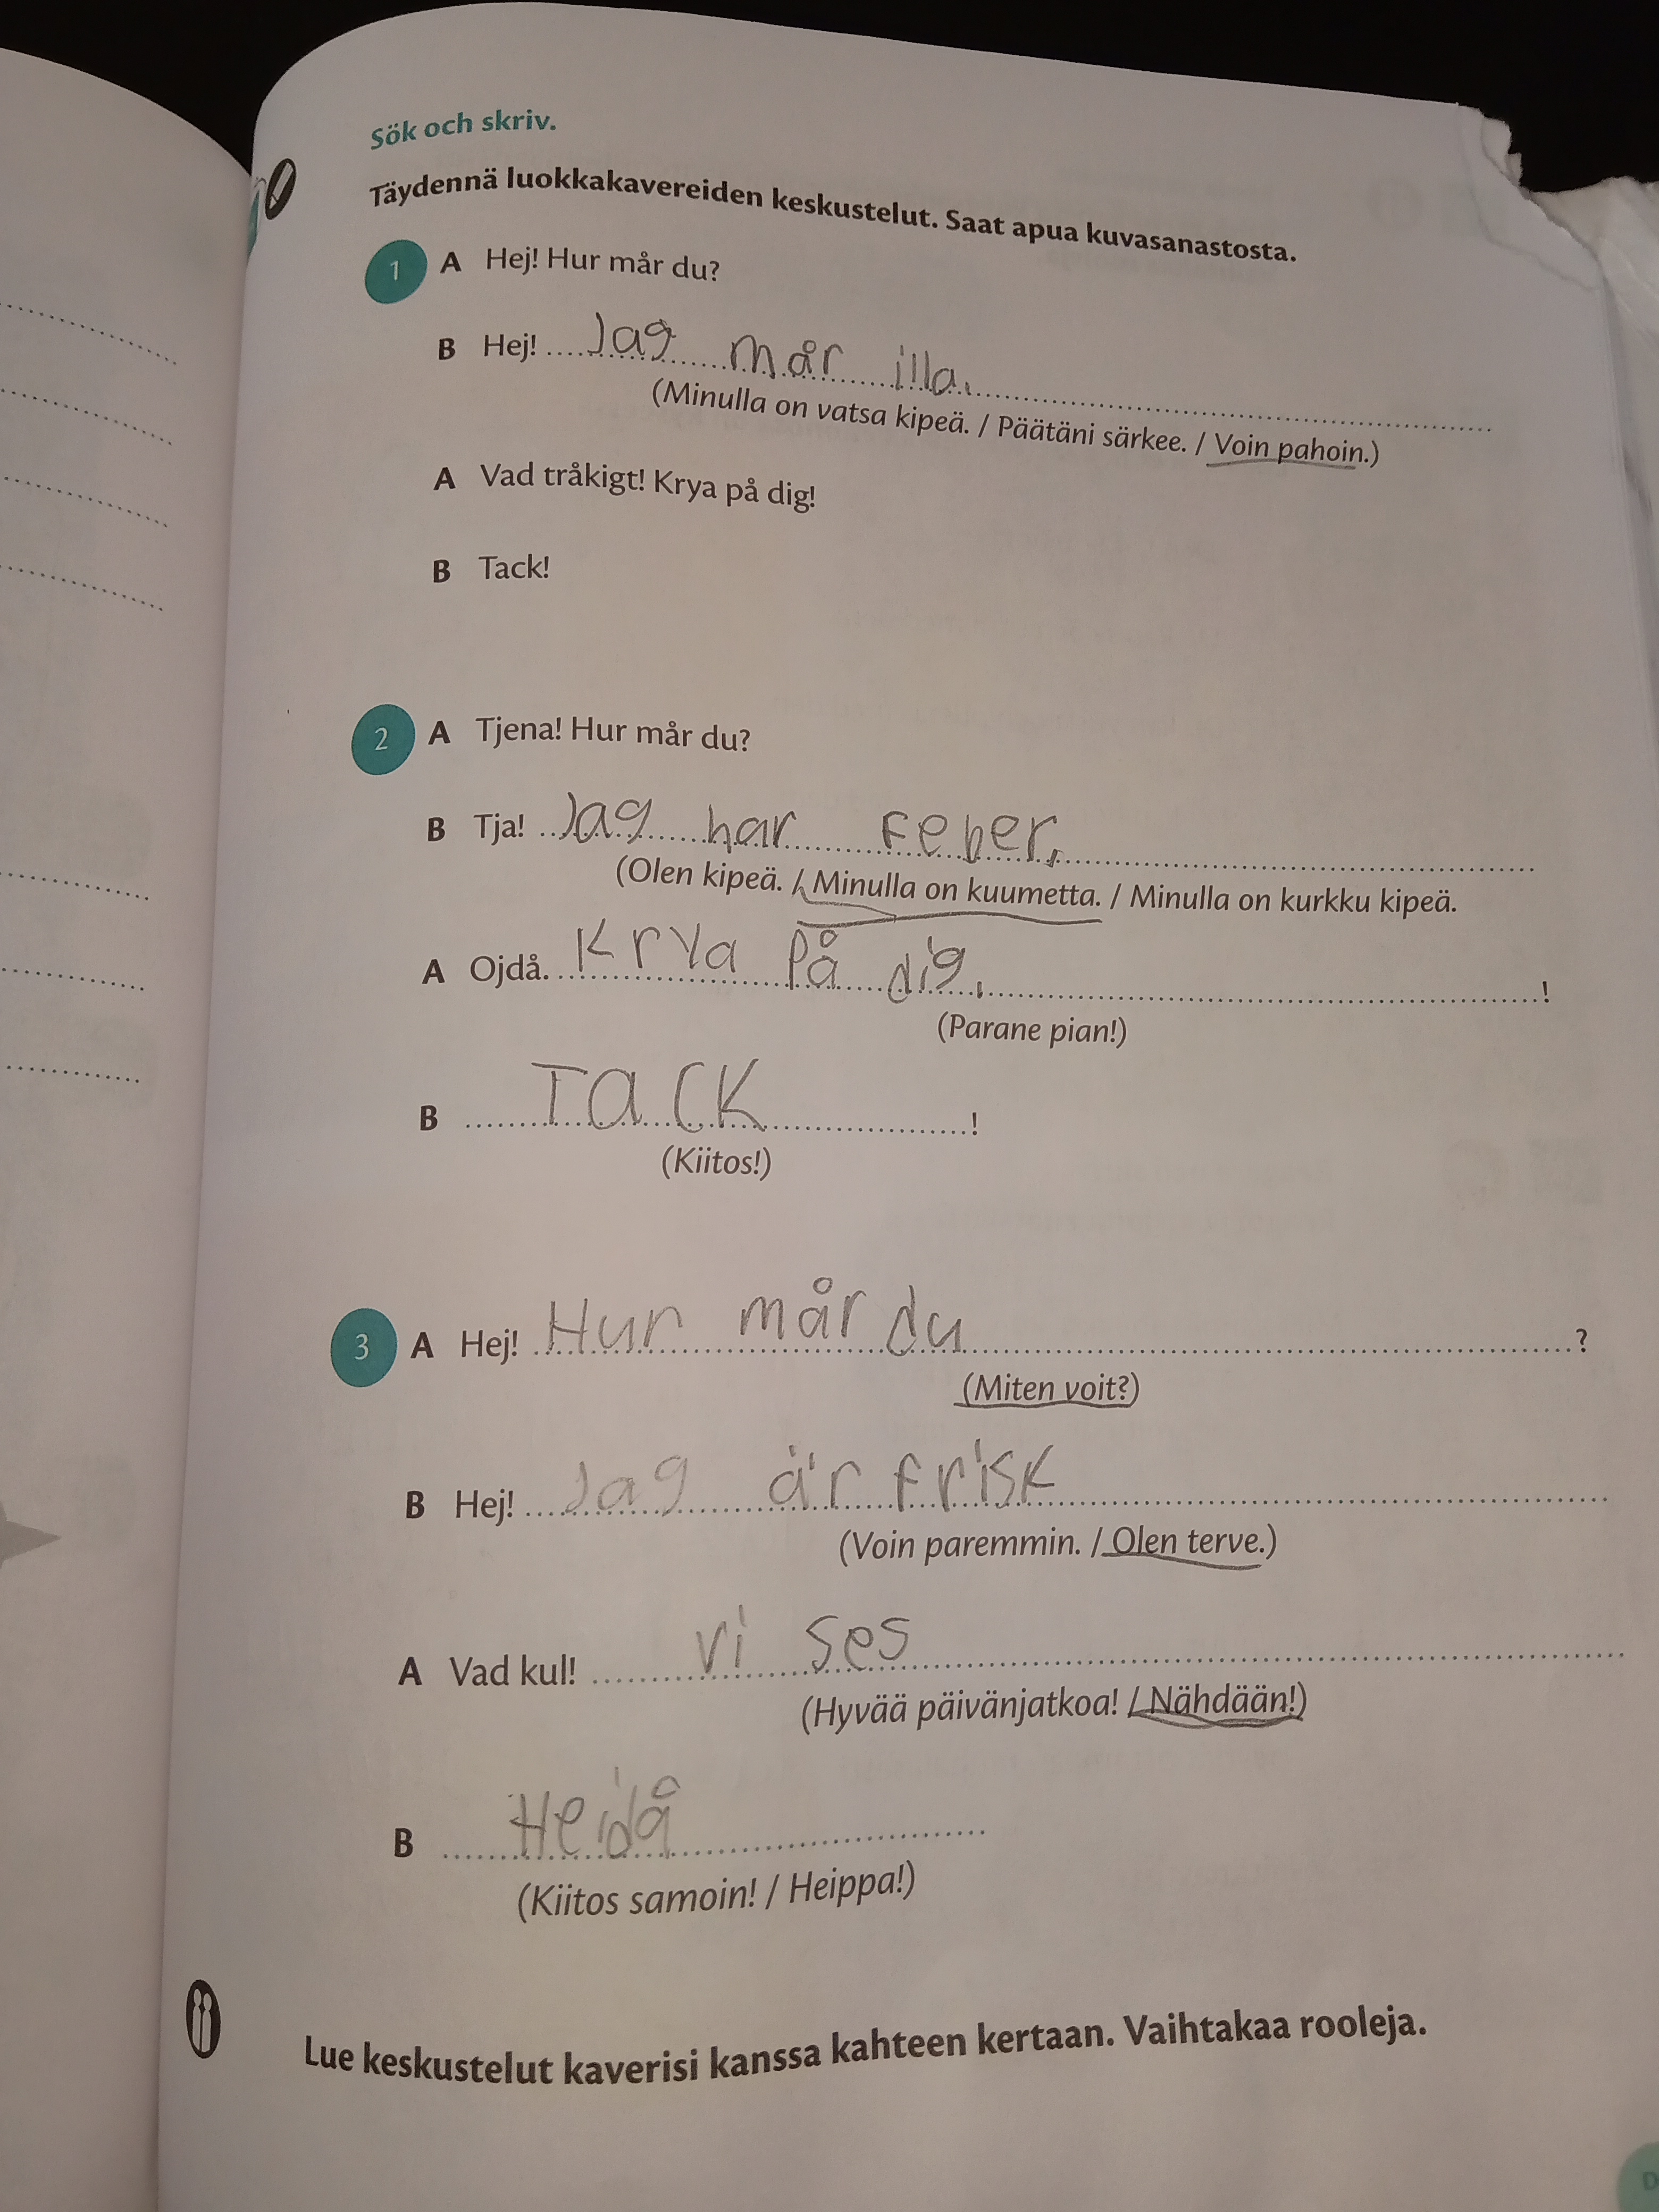 Sök och skriv.
Täydennä luokkakavereiden keskustelut. Saat apua kuvasanastosta.
1 A Hej! Hur mår du?
B Hej! Jag mår illa.
(Minulla on vatsa kipeä. / Päätäni särkee. / Voin pahoin.)
A Vad tråkigt! Krya på dig!
B Tack!
2 A Tjena! Hur mår du?
B Tja! Jag har Feber.
(Olen kipeä. / Minulla on kuumetta. / Minulla on kurkku kipeä.
A Ojdå. Krya på dig. !
(Parane pian!)
B TACK !
(Kiitos!)
3 A Hej! Hur mår du ?
(Miten voit?)
B Hej! Jag är frisk
(Voin paremmin. / Olen terve.)
A Vad kul! vi ses
(Hyvää päivänjatkoa! / Nähdään!)
B Heidå
(Kiitos samoin! / Heippa!)
Lue keskustelut kaverisi kanssa kahteen kertaan. Vaihtakaa rooleja.
D